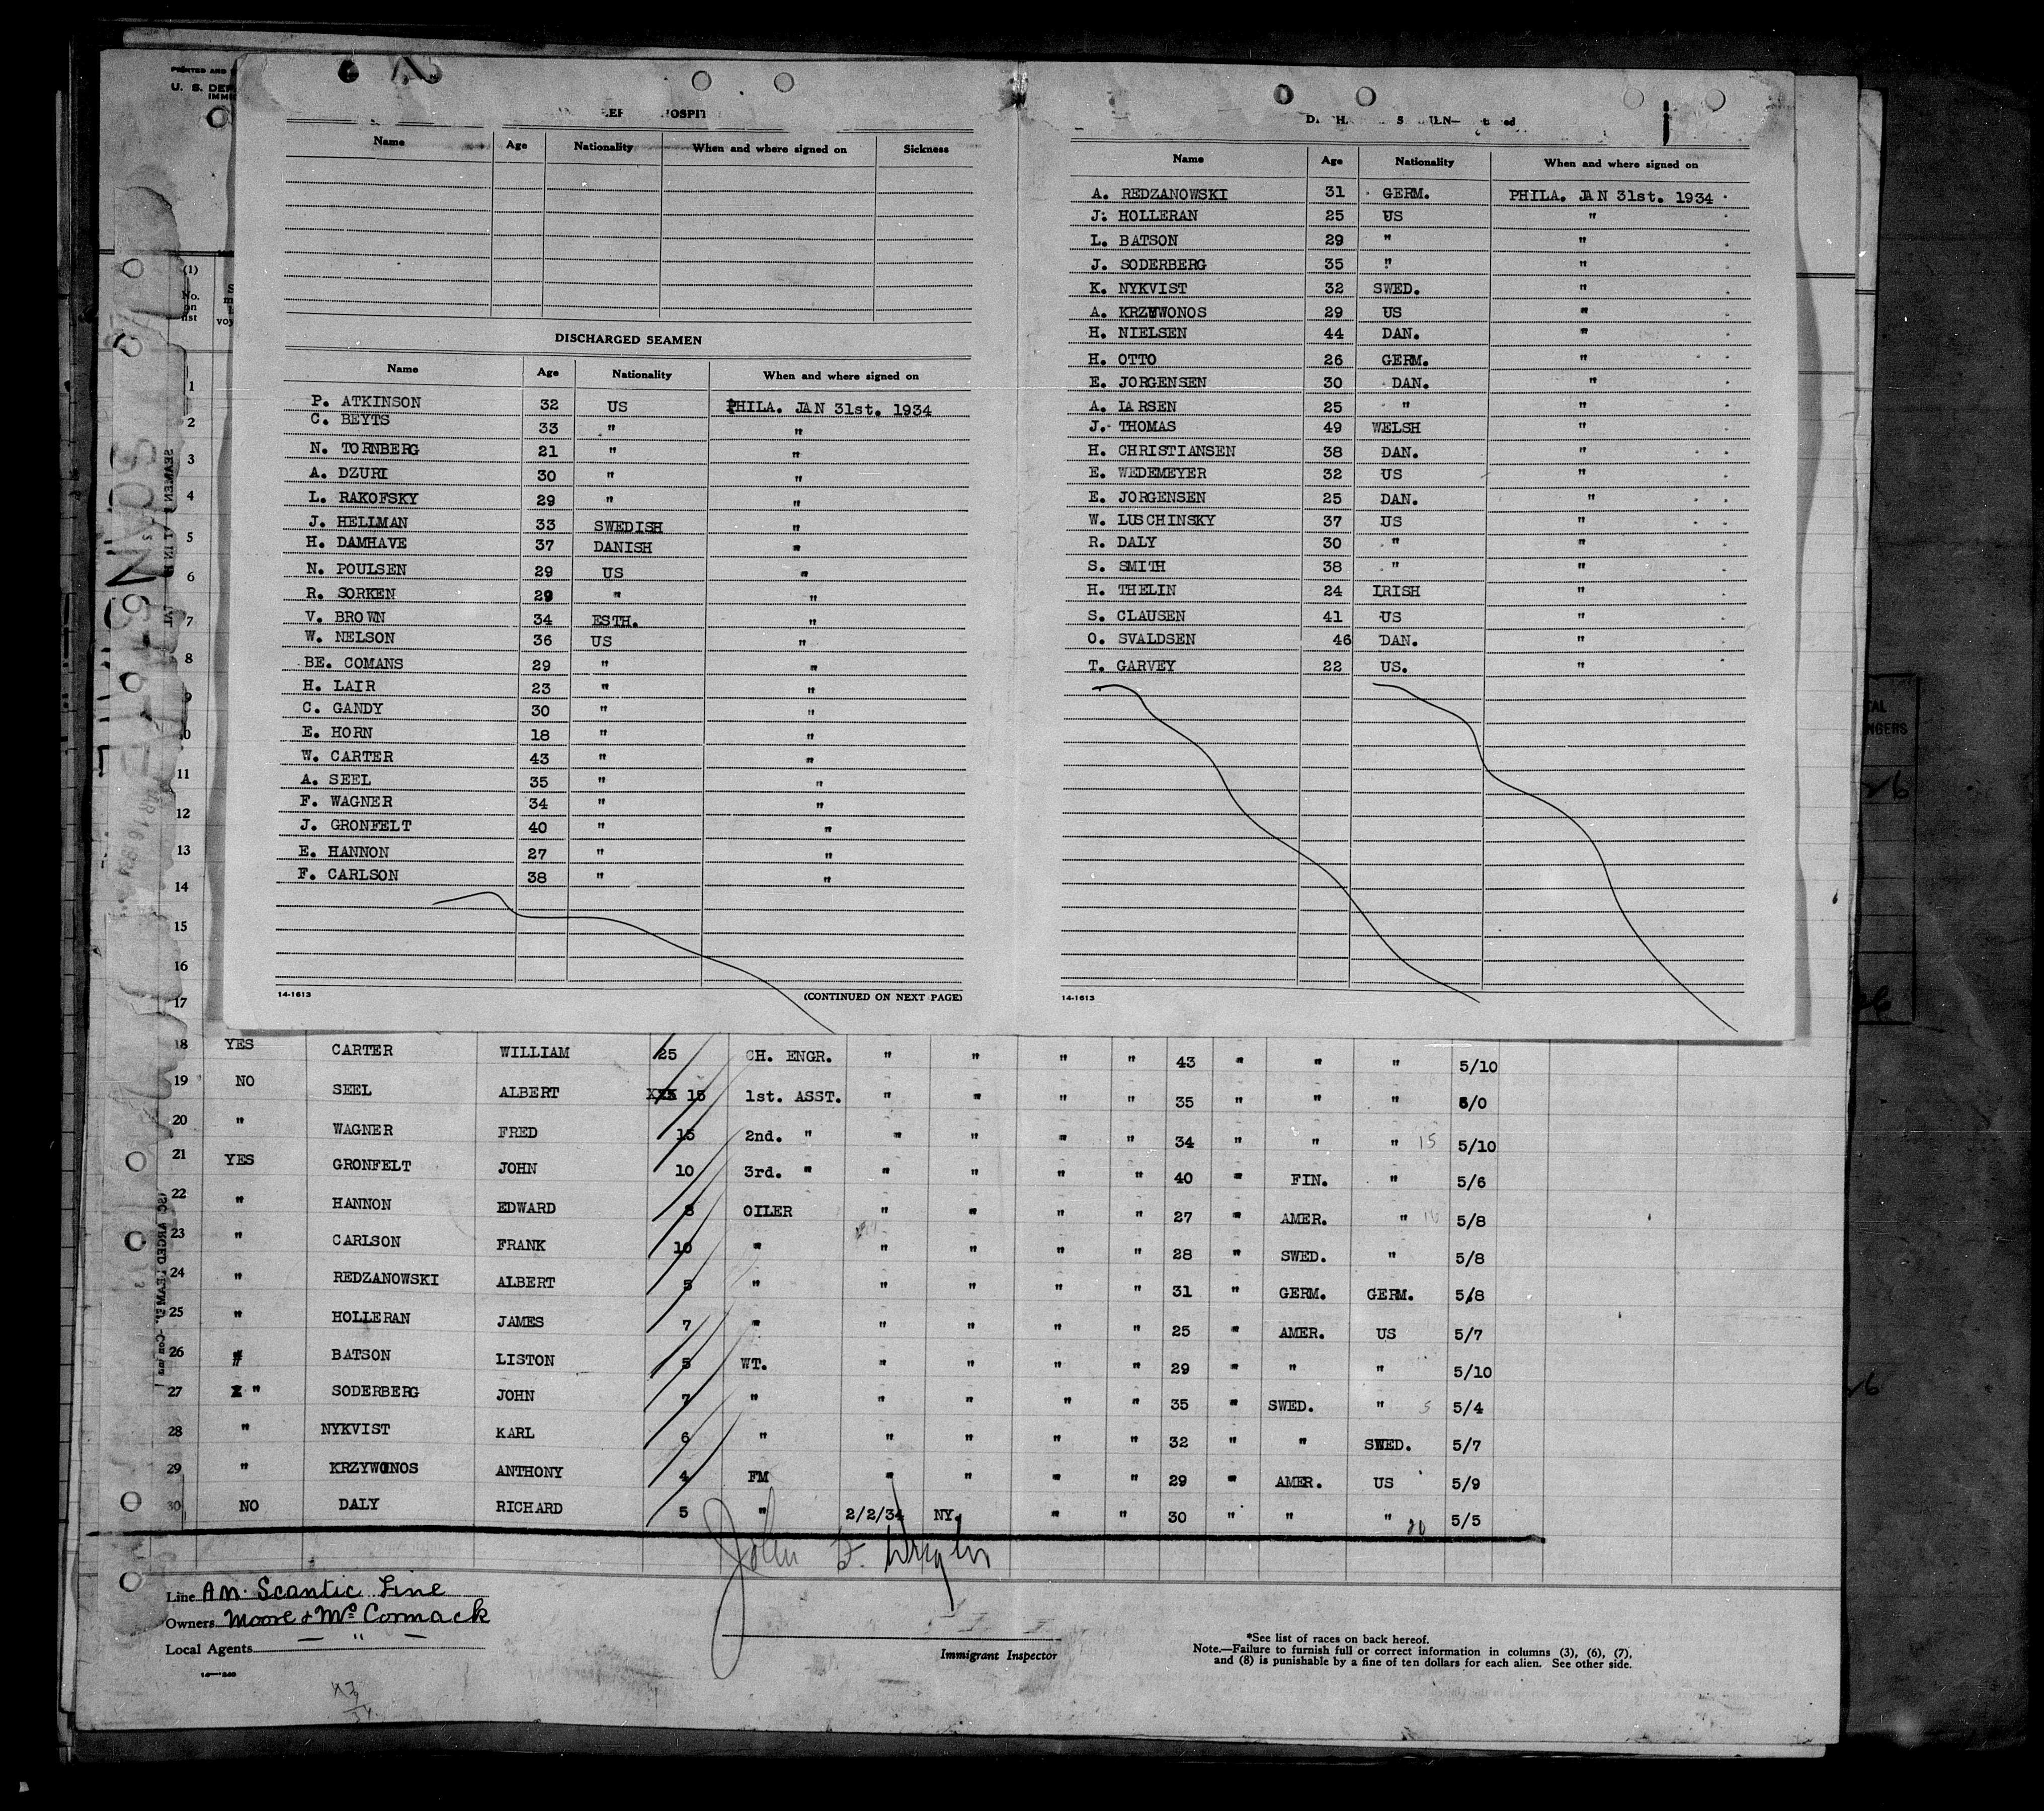 PRINTED AND
U. S. DEP
IMMIG
HOSPIT
Name Age Nationality When and where signed on Sickness
DISCHARGED SEAMEN
Name Age Nationality When and where signed on
P. ATKINSON 32 US PHILA. JAN 31st. 1934
C. BEYTS 33 " "
N. TORNBERG 21 " "
A. DZURI 30 " "
L. RAKOFSKY 29 " "
J. HELLMAN 33 SWEDISH "
H. DAMHAVE 37 DANISH "
N. POULSEN 29 US "
R. SORKEN 29 " "
V. BROWN 34 ESTH. "
W. NELSON 36 US "
BE. COMANS 29 " "
H. LAIR 23 " "
C. GANDY 30 " "
E. HORN 18 " "
W. CARTER 43 " "
A. SEEL 35 " "
F. WAGNER 34 " "
J. GRONFELT 40 " "
E. HANNON 27 " "
F. CARLSON 38 " "
14-1613 (CONTINUED ON NEXT PAGE)
Name Age Nationality When and where signed on
A. REDZANOWSKI 31 GERM. PHILA. JAN 31st. 1934
J. HOLLERAN 25 US "
L. BATSON 29 " "
J. SODERBERG 35 " "
K. NYKVIST 32 SWED. "
A. KRZYWONOS 29 US "
H. NIELSEN 44 DAN. "
H. OTTO 26 GERM. "
E. JORGENSEN 30 DAN. "
A. LARSEN 25 " "
J. THOMAS 49 WELSH "
H. CHRISTIANSEN 38 DAN. "
E. WEDEMEYER 32 US "
E. JORGENSEN 25 DAN. "
W. LUSCHINSKY 37 US "
R. DALY 30 " "
S. SMITH 38 " "
H. THELIN 24 IRISH "
S. CLAUSEN 41 US "
O. SVALDSEN 46 DAN. "
T. GARVEY 22 US. "
14-1613
(1)
No.
on
list
1
2
3
4
5
6
7
8
9
10
11
12
13
14
15
16
17
18 YES CARTER WILLIAM 25 CH. ENGR. " " " " 43 " " " 5/10
19 NO SEEL ALBERT XXX 15 1st. ASST. " " " " 35 " " " 6/0
20 " WAGNER FRED 15 2nd. " " " " " 34 " " " 15 5/10
21 YES GRONFELT JOHN 10 3rd. " " " " " 40 " FIN. " 5/6
22 " HANNON EDWARD 8 OILER " " " " 27 " AMER. " 5/8
23 " CARLSON FRANK 10 " " " " " 28 " SWED. " 5/8
24 " REDZANOWSKI ALBERT 5 " " " " " 31 " GERM. GERM. 5/8
25 " HOLLERAN JAMES 7 " " " " " 25 " AMER. US 5/7
26 " BATSON LISTON 5 WT. " " " " 29 " " " 5/10
27 " SODERBERG JOHN 7 " " " " " 35 " SWED. " 5 5/4
28 " NYKVIST KARL 6 " " " " " 32 " " SWED. 5/7
29 " KRZYWONOS ANTHONY 4 FM " " " " 29 " AMER. US 5/9
30 NO DALY RICHARD 5 " 2/2/34 NY. " " 30 " " " 20 5/5
Line Am. Scantic Line
Owners Moore & McCormack
Local Agents — " —
Immigrant Inspector
*See list of races on back hereof.
Note.—Failure to furnish full or correct information in columns (3), (6), (7),
and (8) is punishable by a fine of ten dollars for each alien. See other side.